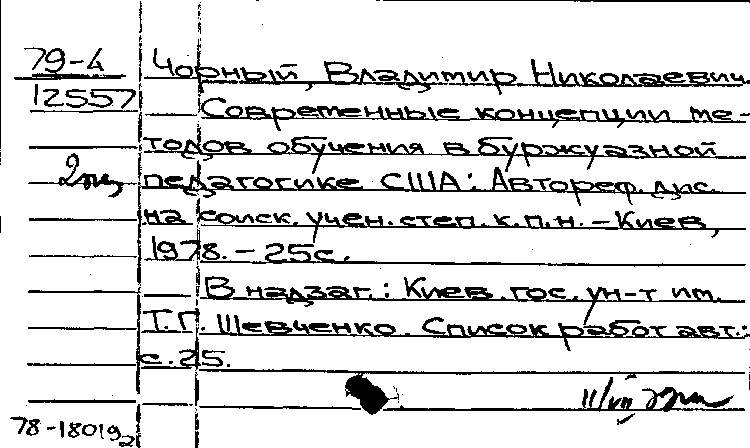 79-4 Чорный, Владимир Николаевич.
12557 Современные концепции ме-
тодов обучения в буржуазной
2 экз педагогике США: Автореф. дис.
на соиск. учен. степ. к.п.н. – Киев,
1978. – 25с.
В надзаг.: Киев. гос. ун-т им.
Т.Г. Шевченко. Список работ авт.:
с. 25.
11/VII
78-18019